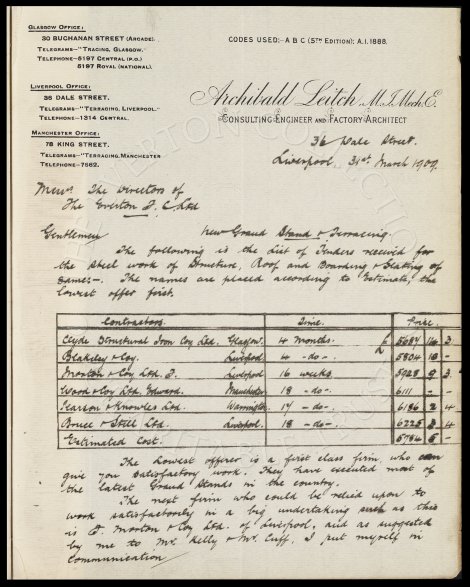 GLASGOW OFFICE:
30 BUCHANAN STREET (ARCADE).
TELEGRAMS—"TRACING, GLASGOW."
TELEPHONE—5197 CENTRAL (P.O.)
5197 ROYAL (NATIONAL).
LIVERPOOL OFFICE:
36 DALE STREET.
TELEGRAMS—"TERRACING, LIVERPOOL."
TELEPHONE—1314 CENTRAL.
MANCHESTER OFFICE:
78 KING STREET.
TELEGRAMS—"TERRACING, MANCHESTER
TELEPHONE—7562.
CODES USED:- A B C (5TH EDITION): A.I. 1888.
Archibald Leitch M.I.Mech.E.
CONSULTING ENGINEER AND FACTORY ARCHITECT
36 Dale Street.
Liverpool 31st March 1909.
Messrs The Directors of
The Everton F. C. Ltd
Gentlemen
New Grand Stand & Terracing.
The following is the List of Tenders received for
the steel work of Structure, Roof and Boarding & Slating of
same:-. The names are placed according to Estimate, the
lowest offer first.
Contractors. Time. Price.
Clyde Structural Iron Coy Ltd. Glasgow. 4 months. £ 5687 16 3
Blakeley & Coy. Liverpool 4 -do-. 5804 10 -
Morton & Coy Ltd. F. Liverpool 16 weeks. 5928 9 3
Wood & Coy Ltd. Edward. Manchester 18 -do-. 6111 - -
Pearson & Knowles Ltd. Warrington 17 -do-. 6186 2 4
Bruce & Still Ltd. Liverpool. 18 -do-. 6225 3 4
Estimated Cost. 5784 5 -
The lowest offerer is a first class firm, who can
give you satisfactory work. They have executed most of
the latest Grand Stands in the country.
The next firm who could be relied upon to
work satisfactorily in a big undertaking such as this
is F. Morton & Coy Ltd. of Liverpool, and as suggested
by me to Mr. Kelly & Mr. Cuff, I put myself in
communication